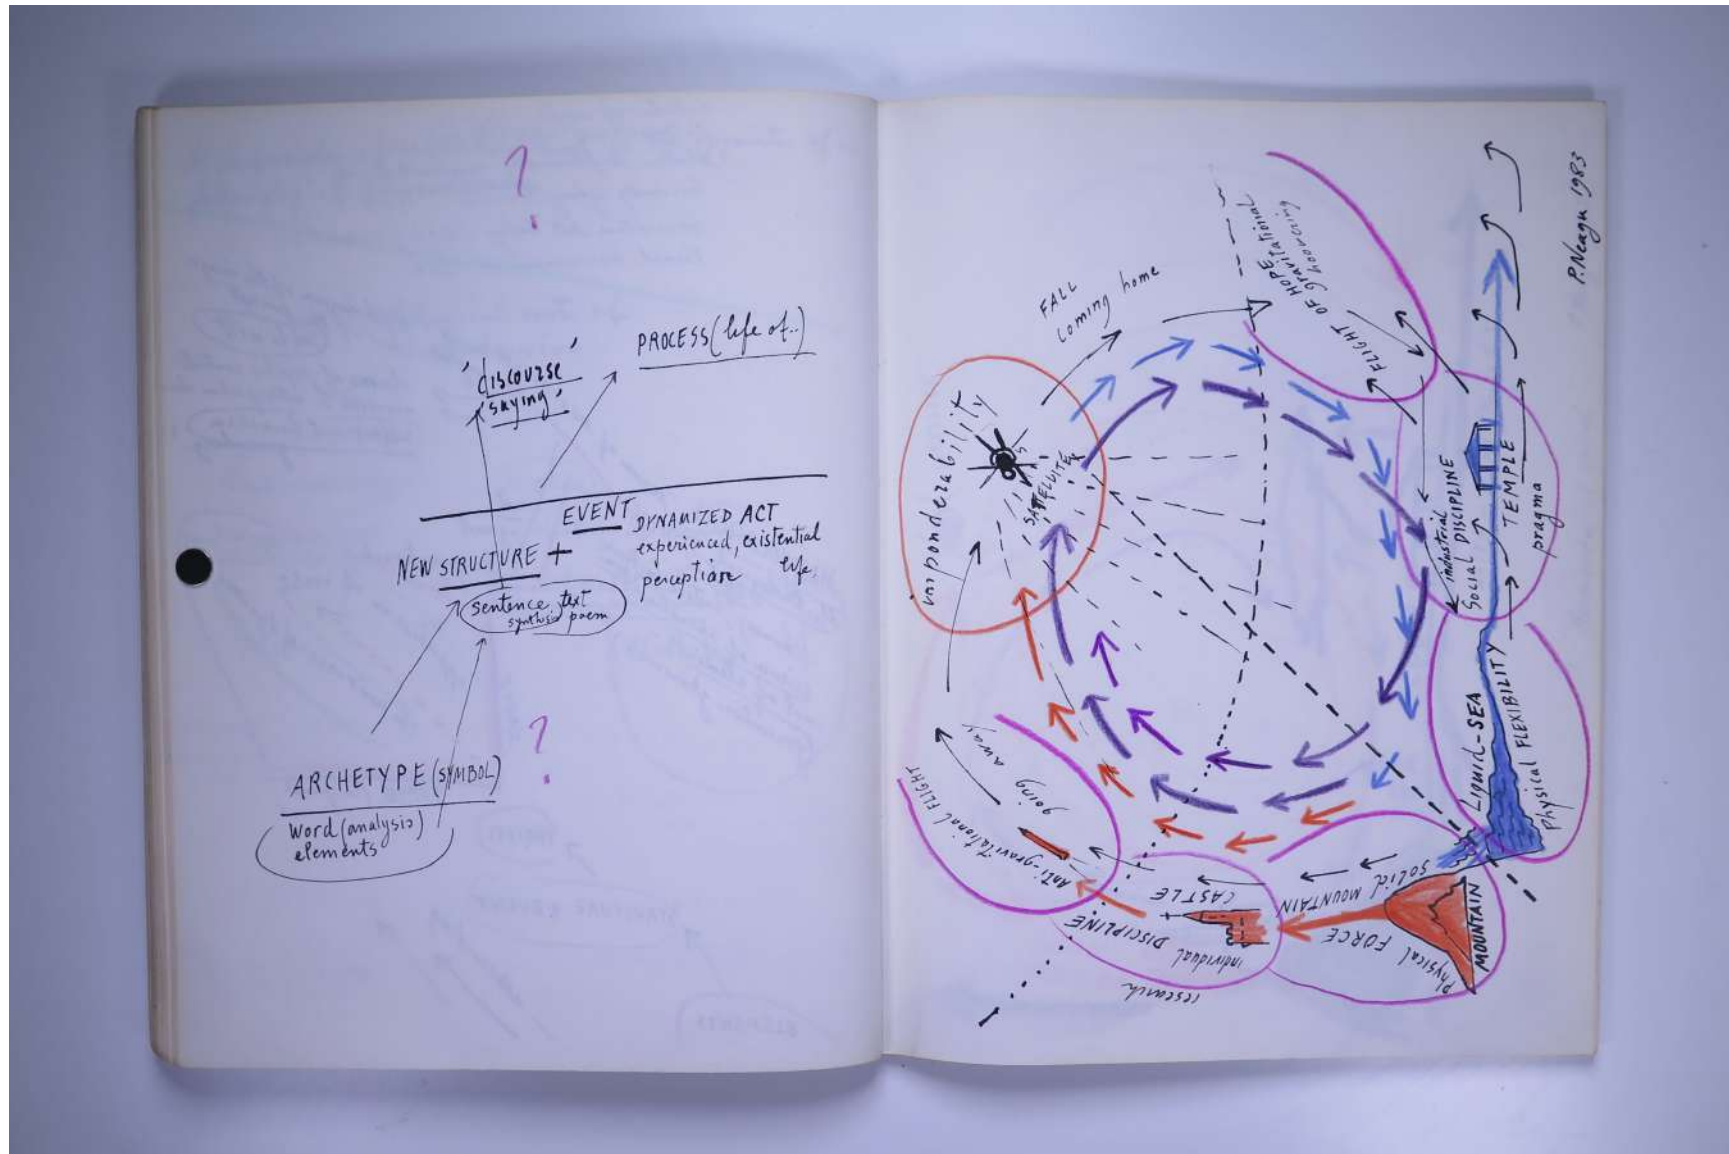 ?
'discourse'
'saying'
PROCESS (life of..)
EVENT
NEW STRUCTURE +
DYNAMIZED ACT
experienced, existential
perception life,
sentence, text
synthesis poem
ARCHETYPE (SYMBOL)
word (analysis)
elements
?
P.Neagu 1983
FALL
coming home
FLIGHT OF HOPE
gravitational
hoovering
imponderability
SATELLITE
industrial
Social DISCIPLINE
TEMPLE
pragma
LIQUID-SEA
Physical FLEXIBILITY
going away
Anti-gravitational FLIGHT
CASTLE
individual DISCIPLINE
research
SOLID MOUNTAIN
Physical FORCE
MOUNTAIN